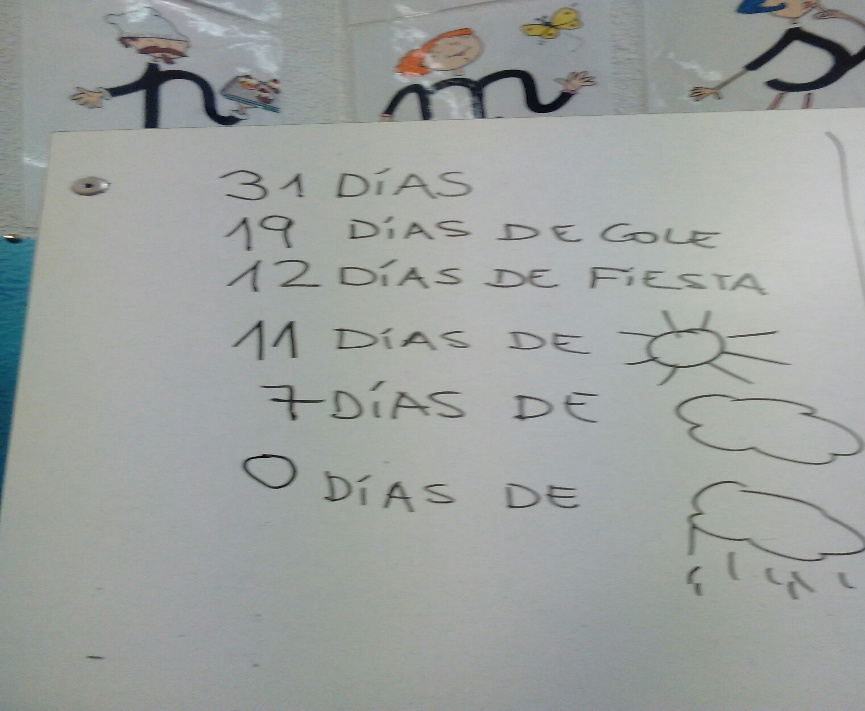 n m s
31 DÍAS
19 DÍAS DE COLE
12 DÍAS DE FIESTA
11 DÍAS DE
7 DÍAS DE
0 DÍAS DE